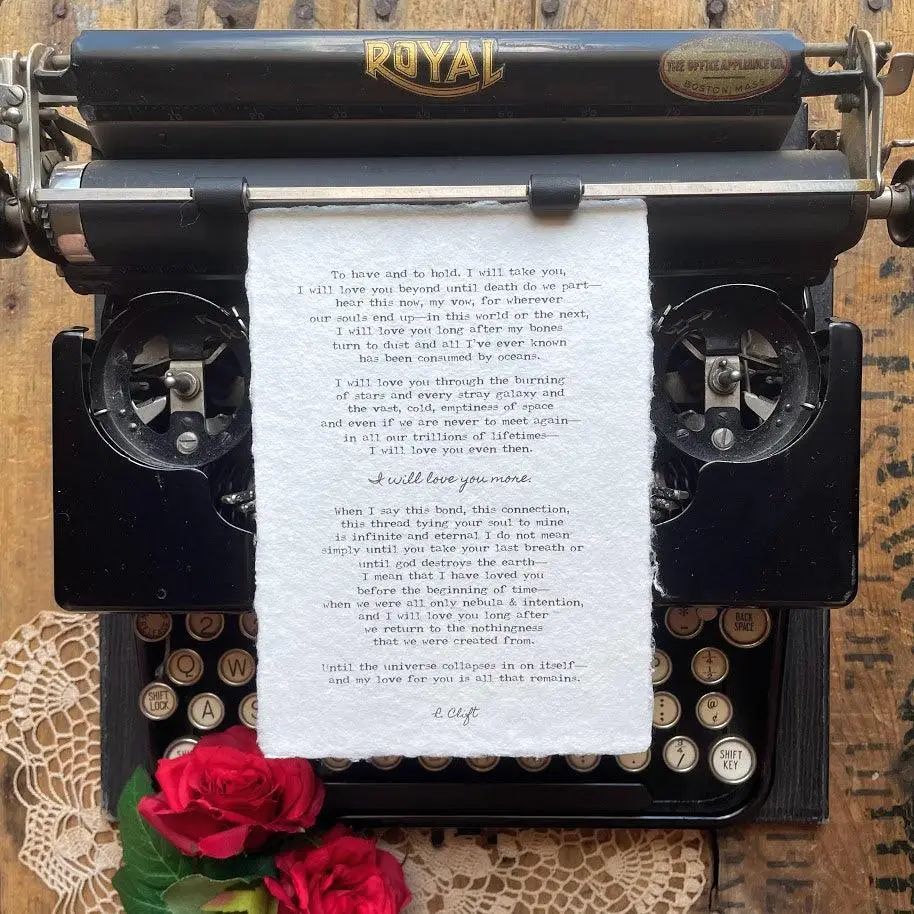 ROYAL
THE OFFICE APPLIANCE CO.
BOSTON, MASS.
To have and to hold. I will take you,
I will love you beyond until death do we part—
hear this now, my vow, for wherever
our souls end up—in this world or the next,
I will love you long after my bones
turn to dust and all I've ever known
has been consumed by oceans.
I will love you through the burning
of stars and every stray galaxy and
the vast, cold, emptiness of space
and even if we are never to meet again—
in all our trillions of lifetimes—
I will love you even then.
I will love you more.
When I say this bond, this connection,
this thread tying your soul to mine
is infinite and eternal I do not mean
simply until you take your last breath or
until god destroys the earth—
I mean that I have loved you
before the beginning of time—
when we were all only nebula & intention,
and I will love you long after
we return to the nothingness
that we were created from.
Until the universe collapses in on itself—
and my love for you is all that remains.
Clift
2
BACK SPACE
Q W
SHIFT LOCK
A S
@
SHIFT KEY